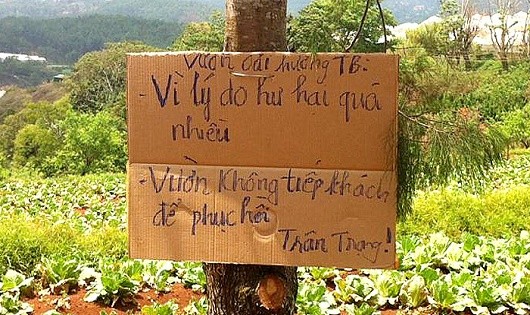 Vườn oải hương TB:
- Vì lý do hư hại quá
nhiều
- Vườn không tiếp khách
để phục hồi
Trân Trọng!